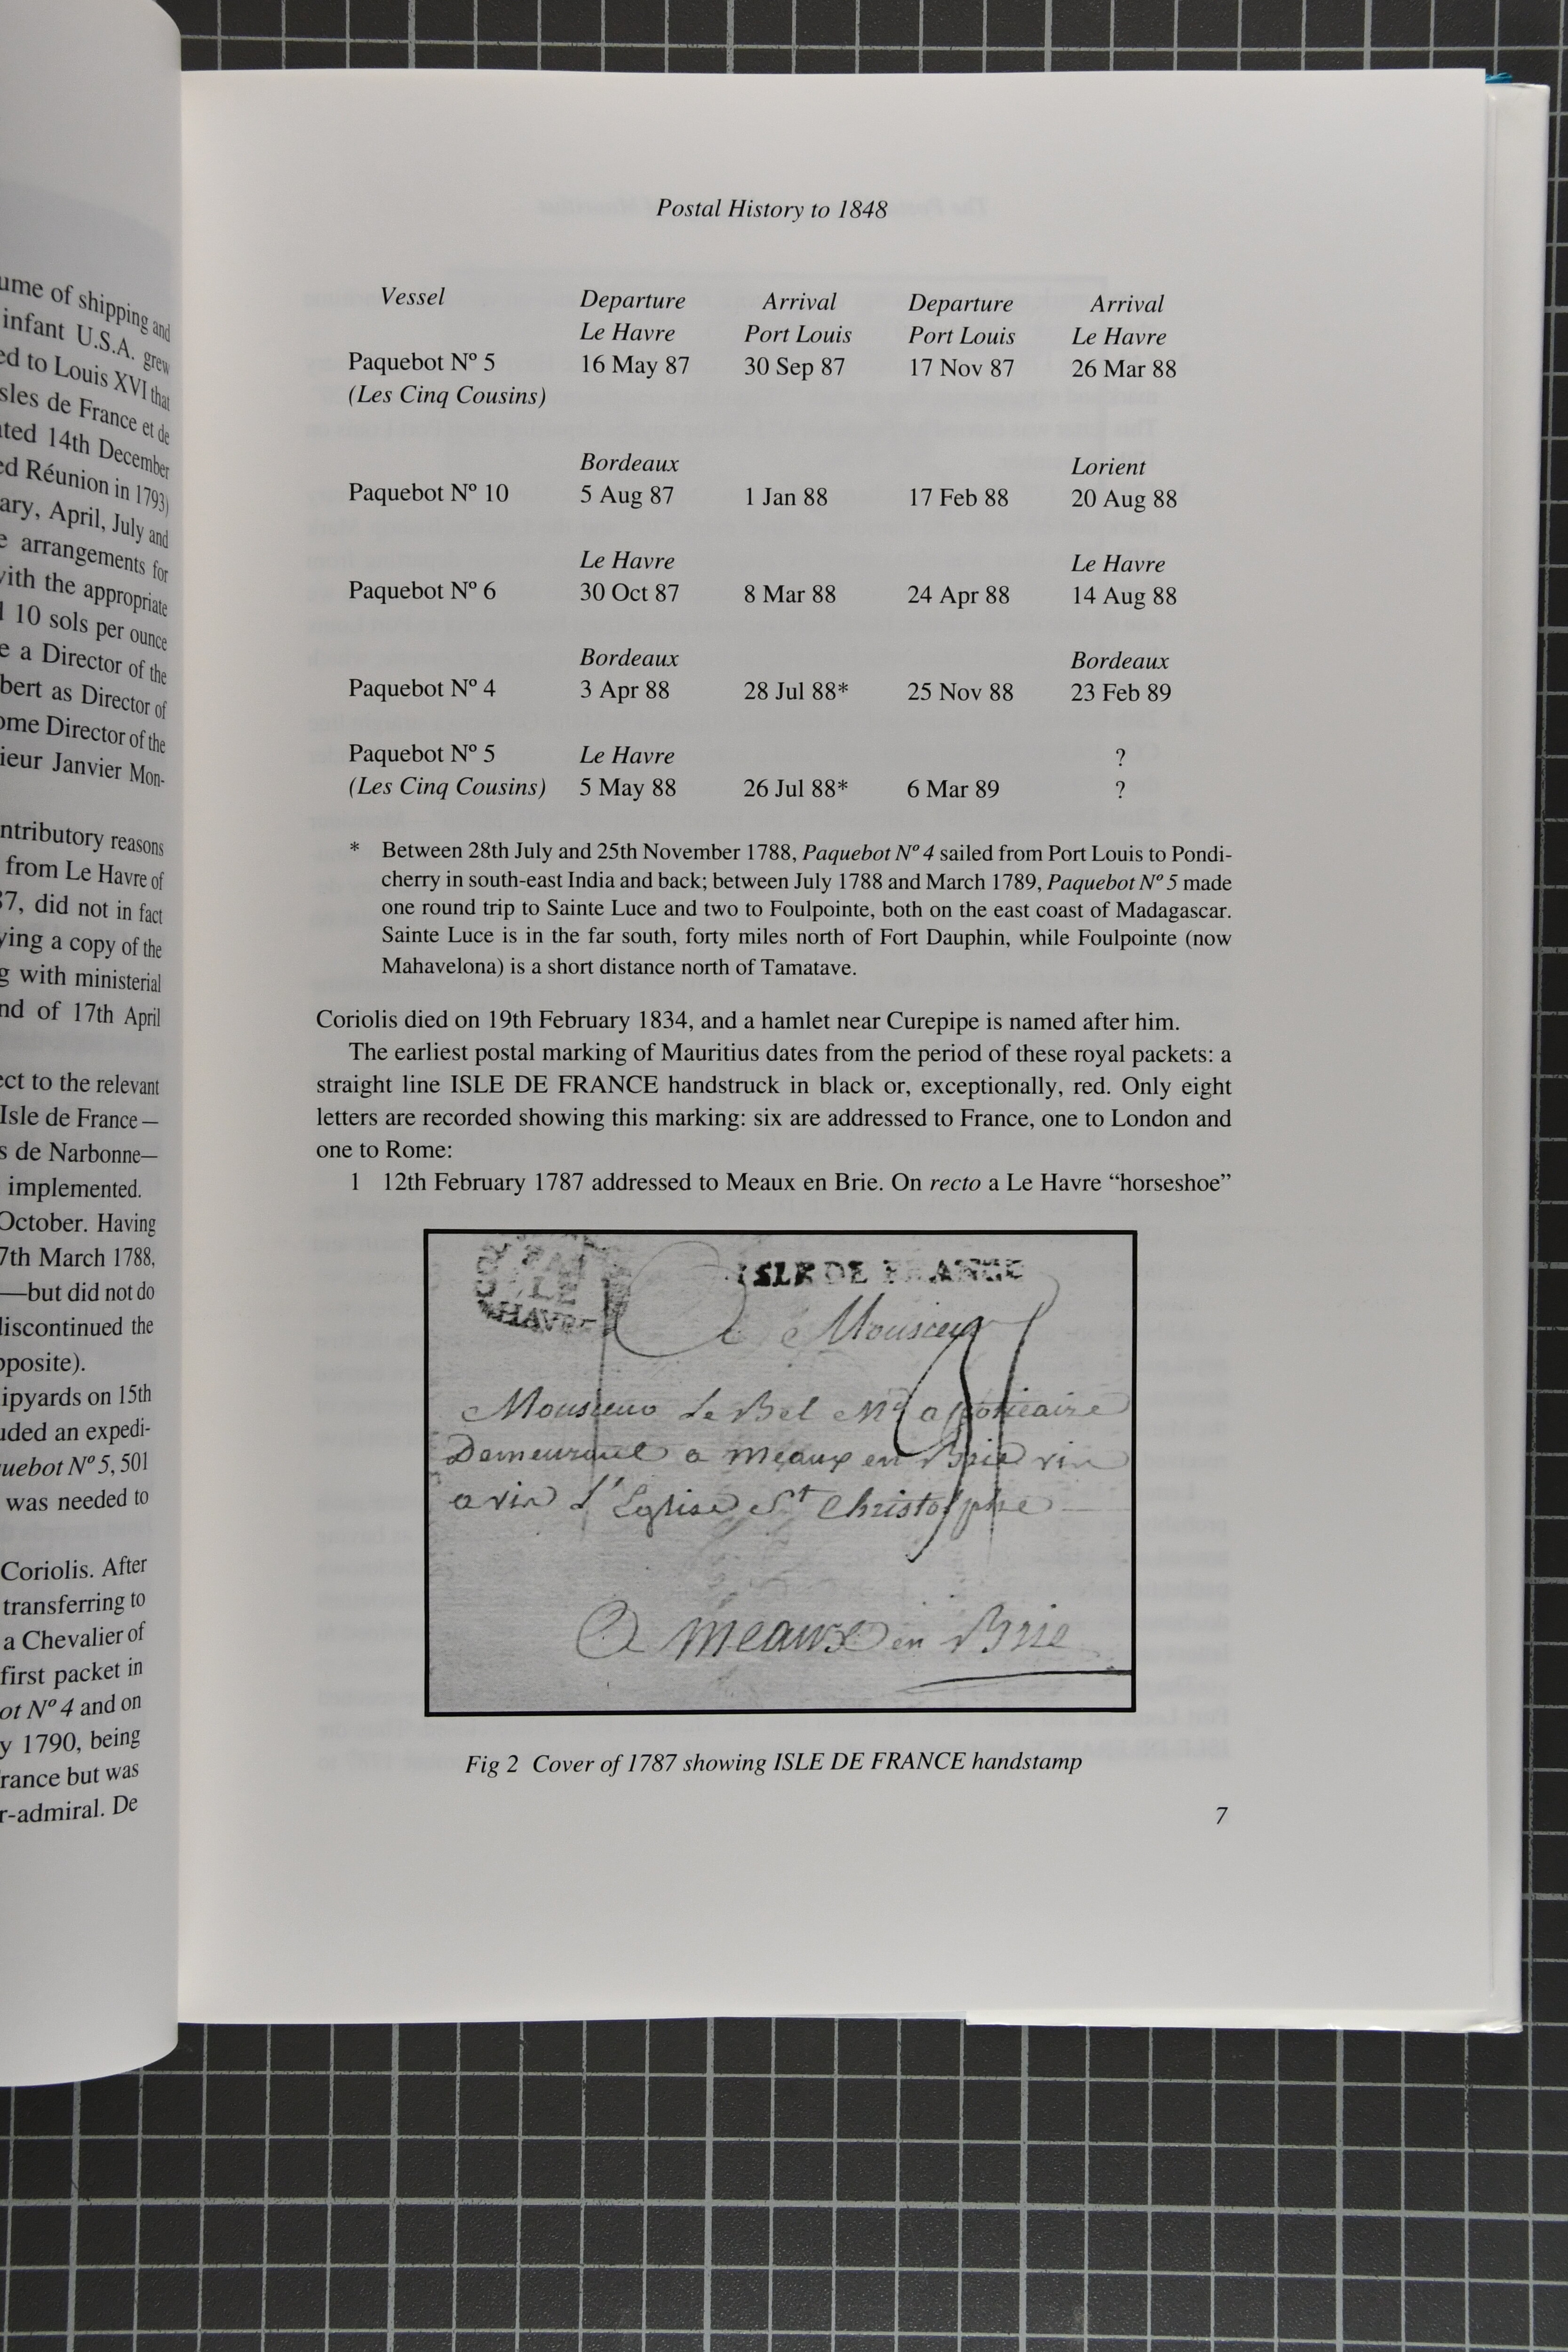 ume of shipping and
infant U.S.A. grew
ed to Louis XVI that
sles de France et de
ated 14th December
ed Réunion in 1793)
ary, April, July and
e arrangements for
with the appropriate
10 sols per ounce
e a Director of the
bert as Director of
ome Director of the
ieur Janvier Mon-
ntributory reasons
from Le Havre of
37, did not in fact
ying a copy of the
g with ministerial
nd of 17th April
ect to the relevant
Isle de France—
s de Narbonne—
implemented.
October. Having
7th March 1788,
—but did not do
discontinued the
pposite).
ipyards on 15th
uded an expedi-
quebot Nº 5, 501
was needed to
Coriolis. After
transferring to
a Chevalier of
first packet in
ot Nº 4 and on
y 1790, being
rance but was
r-admiral. De
Postal History to 1848
Vessel Departure Arrival Departure Arrival
Le Havre Port Louis Port Louis Le Havre
Paquebot Nº 5 16 May 87 30 Sep 87 17 Nov 87 26 Mar 88
(Les Cinq Cousins)
Bordeaux Lorient
Paquebot Nº 10 5 Aug 87 1 Jan 88 17 Feb 88 20 Aug 88
Le Havre Le Havre
Paquebot Nº 6 30 Oct 87 8 Mar 88 24 Apr 88 14 Aug 88
Bordeaux Bordeaux
Paquebot Nº 4 3 Apr 88 28 Jul 88* 25 Nov 88 23 Feb 89
Paquebot Nº 5 Le Havre ?
(Les Cinq Cousins) 5 May 88 26 Jul 88* 6 Mar 89 ?
* Between 28th July and 25th November 1788, Paquebot Nº 4 sailed from Port Louis to Pondi-
cherry in south-east India and back; between July 1788 and March 1789, Paquebot Nº 5 made
one round trip to Sainte Luce and two to Foulpointe, both on the east coast of Madagascar.
Sainte Luce is in the far south, forty miles north of Fort Dauphin, while Foulpointe (now
Mahavelona) is a short distance north of Tamatave.
Coriolis died on 19th February 1834, and a hamlet near Curepipe is named after him.
The earliest postal marking of Mauritius dates from the period of these royal packets: a
straight line ISLE DE FRANCE handstruck in black or, exceptionally, red. Only eight
letters are recorded showing this marking: six are addressed to France, one to London and
one to Rome:
1 12th February 1787 addressed to Meaux en Brie. On recto a Le Havre “horseshoe”
HAVRE
ISLE DE FRANCE
A Monsieur
Monsieur Le Bel Md apotieaire
Demeurant a meaux en Brie vin
a vin l'Eglise St Christophe
A meaux en Brie
Fig 2 Cover of 1787 showing ISLE DE FRANCE handstamp
7